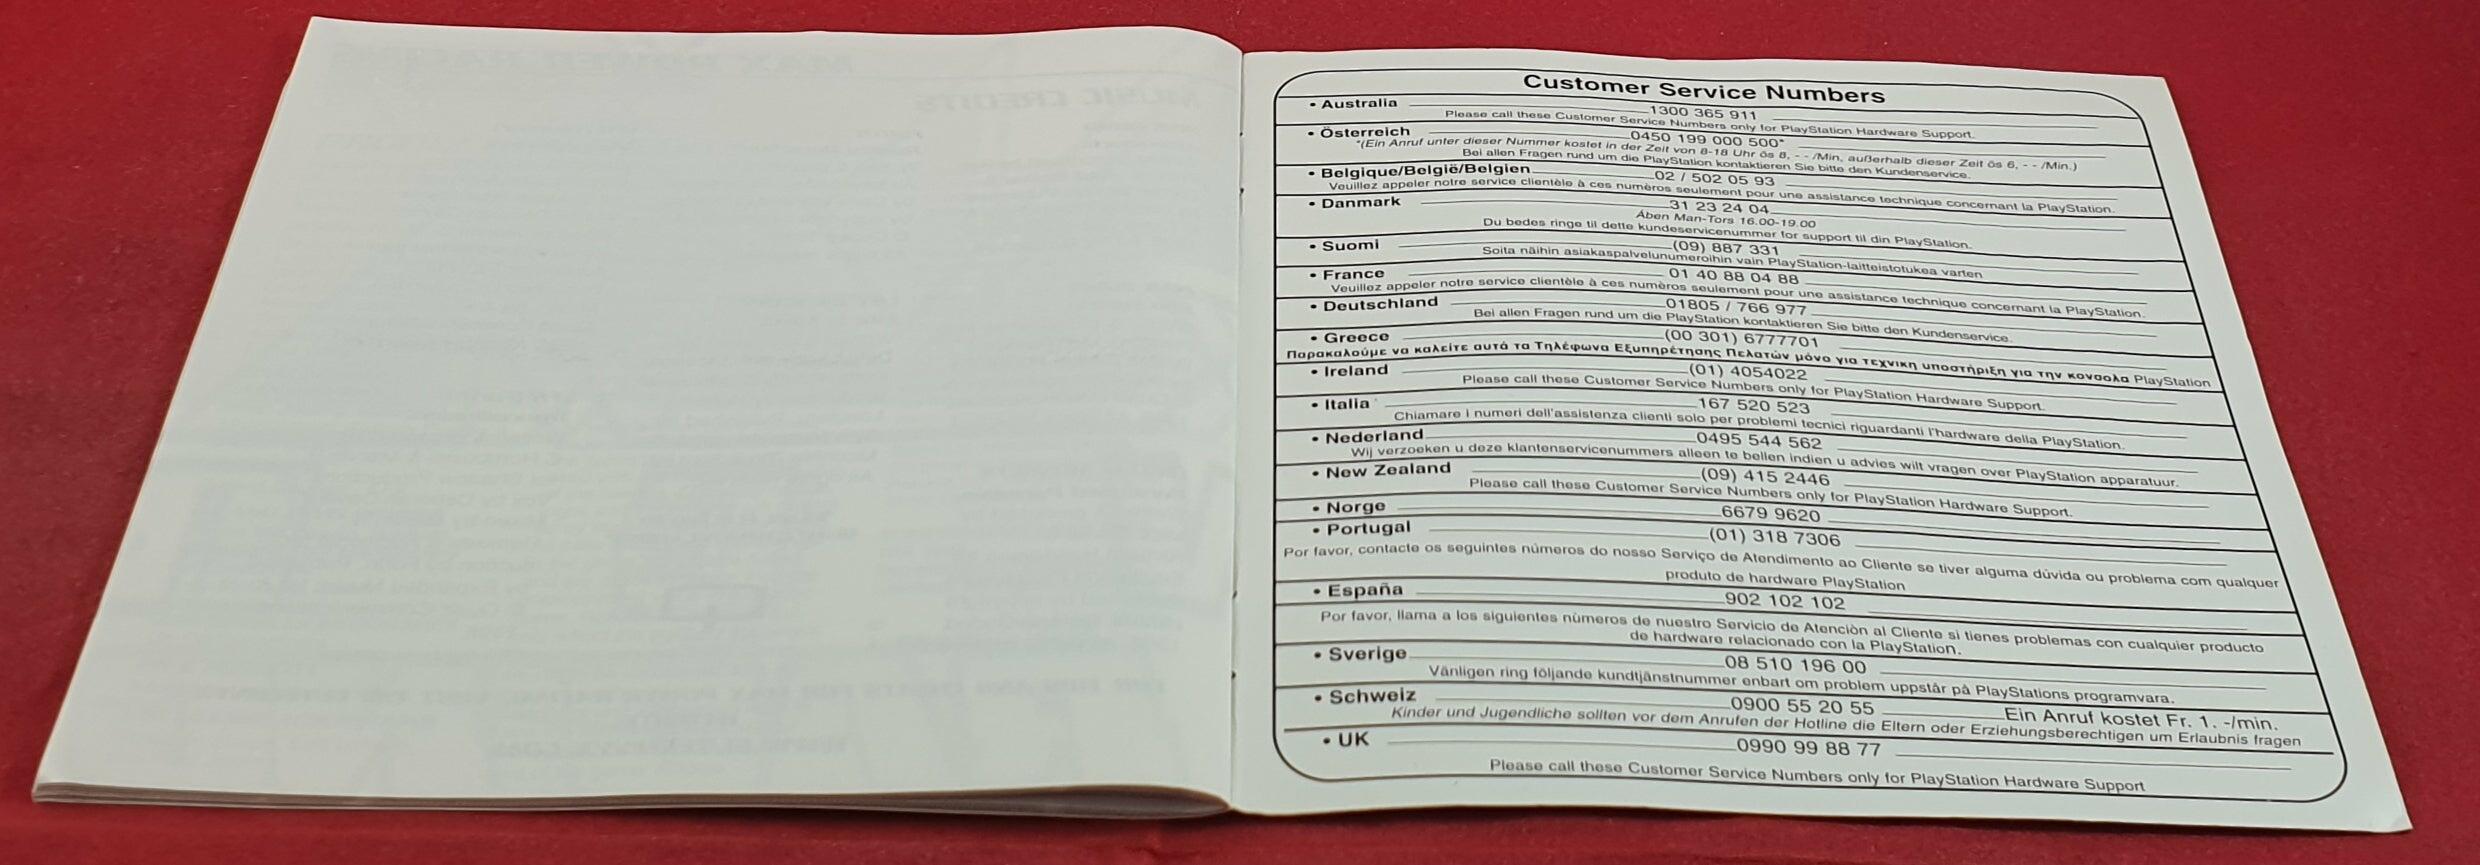 Customer Service Numbers
• Australia 1300 365 911
Please call these Customer Service Numbers only for PlayStation Hardware Support.
• Österreich 0450 199 000 500*
*(Ein Anruf unter dieser Nummer kostet in der Zeit von 8-18 Uhr ös 8, - - /Min, außerhalb dieser Zeit ös 6, - - /Min.)
Bei allen Fragen rund um die PlayStation kontaktieren Sie bitte den Kundenservice.
• Belgique/België/Belgien 02 / 502 05 93
Veuillez appeler notre service clientèle à ces numèros seulement pour une assistance technique concernant la PlayStation.
• Danmark 31 23 24 04
Åben Man-Tors 16.00-19.00
Du bedes ringe til dette kundeservicenummer for support til din PlayStation.
• Suomi (09) 887 331
Soita näihin asiakaspalvelunumeroihin vain PlayStation-laitteistotukea varten
• France 01 40 88 04 88
Veuillez appeler notre service clientèle à ces numèros seulement pour une assistance technique concernant la PlayStation.
• Deutschland 01805 / 766 977
Bei allen Fragen rund um die PlayStation kontaktieren Sie bitte den Kundenservice.
• Greece (00 301) 6777701
Παρακαλούμε να καλείτε αυτά τα Τηλέφωνα Εξυπηρέτησης Πελατών μόνο για τεχνικη υποστήριξη για την κονσολα PlayStation
• Ireland (01) 4054022
Please call these Customer Service Numbers only for PlayStation Hardware Support.
• Italia 167 520 523
Chiamare i numeri dell'assistenza clienti solo per problemi tecnici riguardanti l'hardware della PlayStation.
• Nederland 0495 544 562
Wij verzoeken u deze klantenservicenummers alleen te bellen indien u advies wilt vragen over PlayStation apparatuur.
• New Zealand (09) 415 2446
Please call these Customer Service Numbers only for PlayStation Hardware Support.
• Norge 6679 9620
• Portugal (01) 318 7306
Por favor, contacte os seguintes números do nosso Serviço de Atendimento ao Cliente se tiver alguma dúvida ou problema com qualquer
produto de hardware PlayStation
• España 902 102 102
Por favor, llama a los siguientes nùmeros de nuestro Servicio de Atenciòn al Cliente si tienes problemas con cualquier producto
de hardware relacionado con la PlayStation.
• Sverige 08 510 196 00
Vänligen ring följande kundtjänstnummer enbart om problem uppstår på PlayStations programvara.
• Schweiz 0900 55 20 55 Ein Anruf kostet Fr. 1. -/min.
Kinder und Jugendliche sollten vor dem Anrufen der Hotline die Eltern oder Erziehungsberechtigen um Erlaubnis fragen
• UK 0990 99 88 77
Please call these Customer Service Numbers only for PlayStation Hardware Support